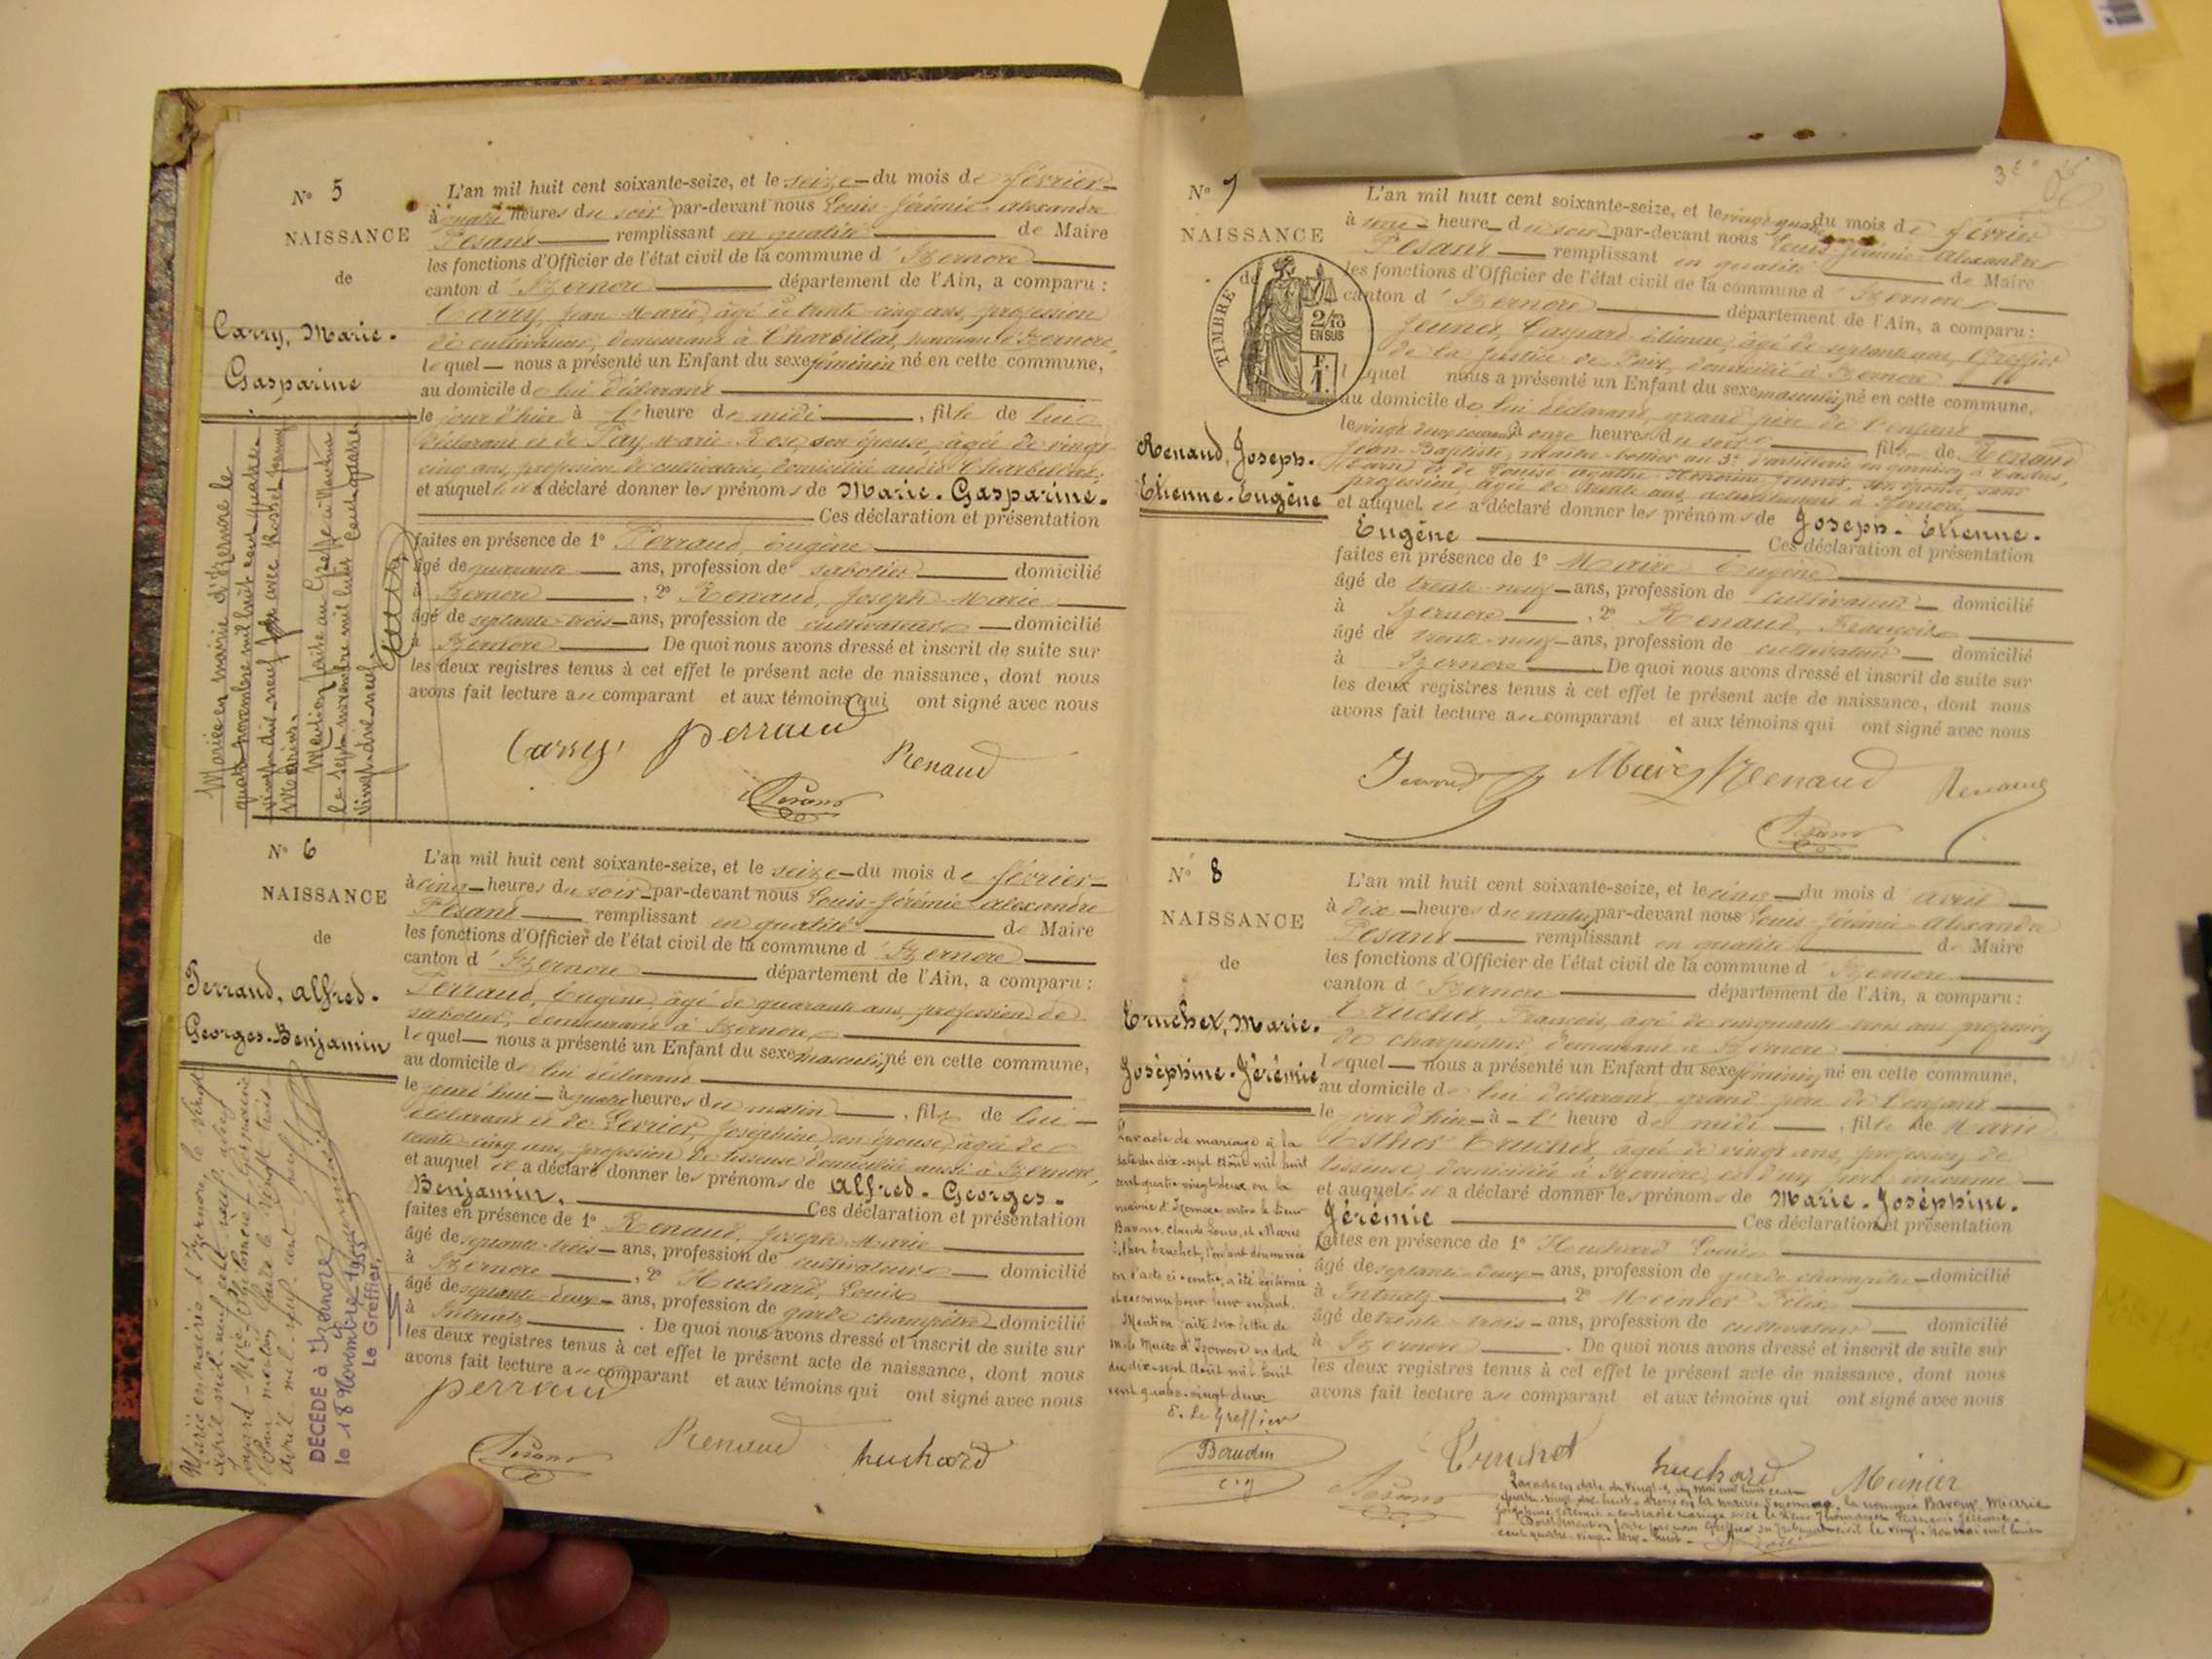 N° 5
NAISSANCE
de
Carry, Marie-
Gasparine
L'an mil huit cent soixante-seize, et le seize du mois de février
à quatre heures du soir par-devant nous Louis-Jérémie-Alexandre
Pesant remplissant en qualité de Maire
les fonctions d'Officier de l'état civil de la commune d'Izernore
canton d'Izernore département de l'Ain, a comparu :
Carry, Jean Marie, âgé de trente cinq ans, profession
de cultivateur, demeurant à Charbillat, d'Izernore,
lequel nous a présenté un Enfant du sexe féminin né en cette commune,
au domicile de lui déclarant
le jour d'hier à l' heure de midi , fille de lui
déclarant et de Pay, Marie Rose, son épouse, âgée de vingt
cinq ans, profession de cultivatrice, domiciliée audit Charbillat,
et auquel il a déclaré donner les prénoms de Marie-Gasparine.
Ces déclaration et présentation
faites en présence de 1° Perraud, Eugène
âgé de quarante ans, profession de sabotier domicilié
à Izernore , 2° Renaud, Joseph Marie
âgé de septante-trois ans, profession de cultivateur domicilié
à Izernore De quoi nous avons dressé et inscrit de suite sur
les deux registres tenus à cet effet le présent acte de naissance, dont nous
avons fait lecture au comparant et aux témoins qui ont signé avec nous
Carry perraud Renaud
Pesant
Mariée en mairie d'Izernore le
quatre novembre mil huit cent quatre
vingt dix neuf avec
Marius.
Mention faite au Greffe
le sept novembre mil huit cent quatre
vingt dix neuf.
N° 6
NAISSANCE
de
Perraud, Alfred-
Georges-Benjamin
L'an mil huit cent soixante-seize, et le seize du mois de février
à cinq heures du soir par-devant nous Louis-Jérémie-Alexandre
Pesant remplissant en qualité de Maire
les fonctions d'Officier de l'état civil de la commune d'Izernore
canton d'Izernore département de l'Ain, a comparu :
Perraud, Eugène, âgé de quarante ans, profession de
sabotier, demeurant à Izernore,
lequel nous a présenté un Enfant du sexe masculin né en cette commune,
au domicile de lui déclarant
le jourd'hui à quatre heures du matin , fils de lui
déclarant et de Levrier, Joséphine, son épouse, âgée de
trente cinq ans, profession de tisseuse domiciliée aussi à Izernore,
et auquel il a déclaré donner les prénoms de Alfred-Georges-
Benjamin. Ces déclaration et présentation
faites en présence de 1° Renaud, Joseph Marie
âgé de septante-trois ans, profession de cultivateur domicilié
à Izernore , 2° Huchard, Louis
âgé de septante-deux ans, profession de garde champêtre domicilié
à Intriatz . De quoi nous avons dressé et inscrit de suite sur
les deux registres tenus à cet effet le présent acte de naissance, dont nous
avons fait lecture au comparant et aux témoins qui ont signé avec nous
perraud
Pesant Renaud huchard
Marié en mairie d'Izernore, le vingt
avril mil neuf cent neuf, avec
DÉCÉDÉ à Izernore
le 18 Novembre 1953
Le Greffier,
3e
N° 7
NAISSANCE
de
TIMBRE
2/10
EN SUS
F.
1.
Renaud, Joseph-
Etienne-Eugène
L'an mil huit cent soixante-seize, et le vingt quatre du mois de février
à une heure du soir par-devant nous Louis Jérémie Alexandre
Pesant remplissant en qualité de Maire
les fonctions d'Officier de l'état civil de la commune d'Izernore
canton d'Izernore département de l'Ain, a comparu :
Gaspard Etienne, âgé de septante ans, Greffier
de la Justice de Paix, domicilié à Izernore
lequel nous a présenté un Enfant du sexe masculin né en cette commune,
au domicile de lui déclarant, grand père de l'enfant
le vingt deux courant à onze heures du soir fils de Renaud
Jean Baptiste, maître-bottier au 3e d'artillerie en garnison à Castres,
(Tarn) et de Louise Agathe Honorine son épouse, sans
profession, âgée de trente ans, actuellement à Izernore
et auquel il a déclaré donner les prénoms de Joseph-Etienne-
Eugène Ces déclaration et présentation
faites en présence de 1° Maire Eugène
âgé de trente-neuf ans, profession de cultivateur domicilié
à Izernore , 2° Renaud, François
âgé de trente-neuf ans, profession de cultivateur domicilié
à Izernore De quoi nous avons dressé et inscrit de suite sur
les deux registres tenus à cet effet le présent acte de naissance, dont nous
avons fait lecture au comparant et aux témoins qui ont signé avec nous
Maire Renaud Renaud
Pesant
N° 8
NAISSANCE
de
Truchet, Marie-
Joséphine-Jérémie
L'an mil huit cent soixante-seize, et le cinq du mois d'avril
à dix heures du matin par-devant nous Louis-Jérémie-Alexandre
Pesant remplissant en qualité de Maire
les fonctions d'Officier de l'état civil de la commune d'Izernore
canton d'Izernore département de l'Ain, a comparu :
Truchet, François, âgé de cinquante trois ans profession
de charpentier, demeurant à Izernore
lequel nous a présenté un Enfant du sexe féminin né en cette commune,
au domicile de lui déclarant grand père de l'enfant
le jour d'hier à l' heure de midi , fille de Marie
Esther Truchet, âgée de vingt ans, profession de
tisseuse, domiciliée à Izernore, et d'un père inconnu
et auquel il a déclaré donner les prénoms de Marie-Joséphine-
Jérémie Ces déclaration et présentation
faites en présence de 1° Huchard Louis
âgé de septante-deux ans, profession de garde champêtre domicilié
à Intriatz 2° Meinier Félix
âgé de trente-trois ans, profession de cultivateur domicilié
à Izernore . De quoi nous avons dressé et inscrit de suite sur
les deux registres tenus à cet effet le présent acte de naissance, dont nous
avons fait lecture au comparant et aux témoins qui ont signé avec nous
Truchet huchard Meinier
Pesant
Par acte de mariage à la
date du dix-sept Août mil huit
cent quatre-vingt deux en la
mairie d'Izernore entre le sieur
Claude Louis, et Marie
Esther Truchet, l'enfant dénommée
en l'acte ci-contre, a été légitimée
et reconnue pour leur enfant.
Mention faite sur lettre de
M. le Maire d'Izernore en date
du dix-sept Août mil huit
cent quatre-vingt deux
Le Greffier
Baudin